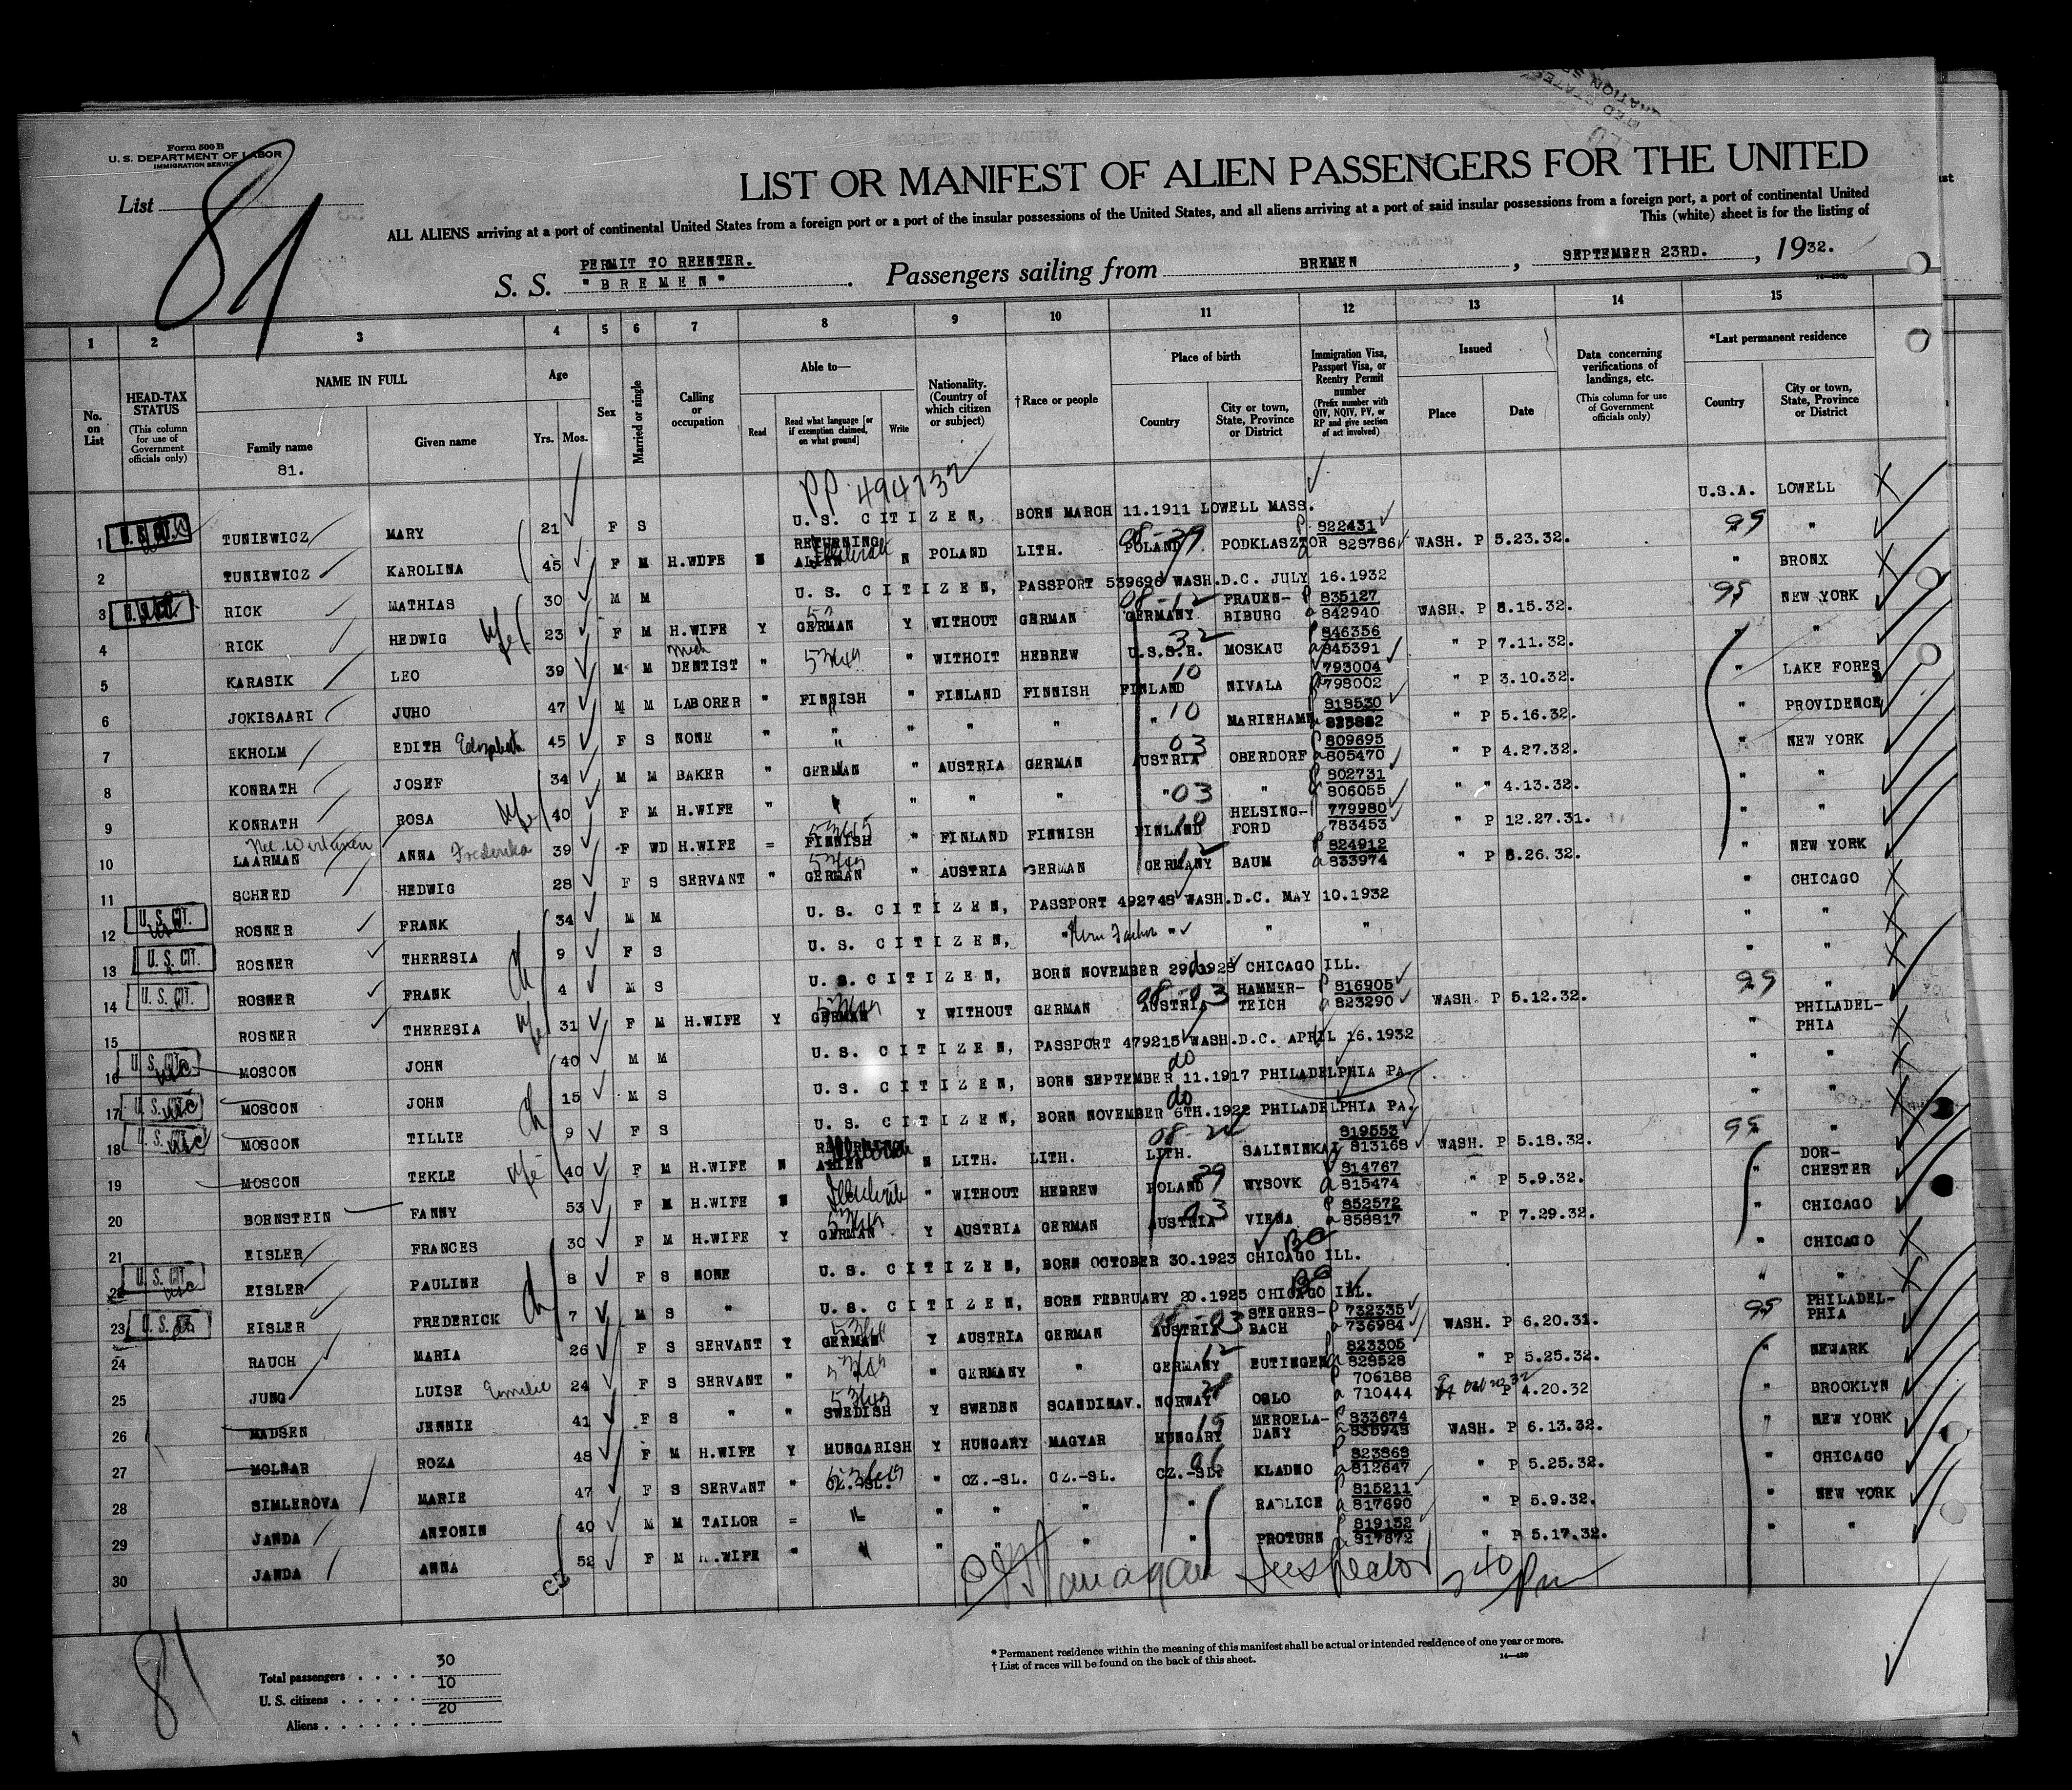 Form 500 B
U. S. DEPARTMENT OF LABOR
IMMIGRATION SERVICE
List 81
LIST OR MANIFEST OF ALIEN PASSENGERS FOR THE UNITED
ALL ALIENS arriving at a port of continental United States from a foreign port or a port of the insular possessions of the United States, and all aliens arriving at a port of said insular possessions from a foreign port, a port of continental United
This (white) sheet is for the listing of
PERMIT TO REENTER.
S. S. "BREMEN" . Passengers sailing from BREMEN , SEPTEMBER 23RD. , 1932.
1 2 3 4 5 6 7 8 9 10 11 12 13 14 15
No. on List
HEAD-TAX STATUS (This column for use of Government officials only)
NAME IN FULL
Family name
Given name
81.
Age
Yrs. Mos.
Sex
Married or single
Calling or occupation
Able to—
Read
Read what language [or if exemption claimed, on what ground]
Write
Nationality. (Country of which citizen or subject)
† Race or people
Place of birth
Country
City or town, State, Province or District
Immigration Visa, Passport Visa, or Reentry Permit number (Prefix number with QIV, NQIV, PV, or RP and give section of act involved)
Issued
Place
Date
Data concerning verifications of landings, etc. (This column for use of Government officials only)
*Last permanent residence
Country
City or town, State, Province or District
PP 494732
1 U. S. CIT. TUNIEWICZ MARY 21 F S U. S. CITIZEN, BORN MARCH 11.1911 LOWELL MASS. U.S.A. LOWELL
2 TUNIEWICZ KAROLINA 45 F M H.WDFE N RETURNING ALIEN N POLAND LITH. POLAND PODKLASZTOR 822431 828786 WASH. P 5.23.32. 99 "
3 RICK MATHIAS 30 M M U. S. CITIZEN, PASSPORT 539696 WASH.D.C. JULY 16.1932 " BRONX
4 RICK HEDWIG wife 23 F M H.WIFE Y GERMAN Y WITHOUT GERMAN GERMANY FRAUEN-BIBURG 835127 842940 WASH. P 8.15.32. 99 NEW YORK
5 KARASIK LEO 39 M M Mech DENTIST " " WITHOIT HEBREW U.S.S.R. MOSKAU 846356 845391 " P 7.11.32. " "
6 JOKISAARI JUHO 47 M M LABORER " FINNISH " FINLAND FINNISH FINLAND NIVALA 793004 798002 " P 3.10.32. " LAKE FORES
7 EKHOLM EDITH Elizabeth 45 F S NONE " " " " " " MARIEHAMN 818530 823882 " P 5.16.32. " PROVIDENCE
8 KONRATH JOSEF 34 M M BAKER " GERMAN " AUSTRIA GERMAN AUSTRIA OBERDORF 809695 805470 " P 4.27.32. " NEW YORK
9 KONRATH ROSA wife 40 F M H.WIFE " " " " " " 802731 806055 " " 4.13.32. " "
10 LAARMAN ANNA Frederika 39 F WD H.WIFE = FINNISH " FINLAND FINNISH FINLAND HELSING-FORD 779980 783453 " P 12.27.31. " "
11 SCHEED HEDWIG 28 F S SERVANT " GERMAN " AUSTRIA GERMAN GERMANY BAUM 824912 833974 " P 8.26.32. " NEW YORK
12 U. S. CIT. ROSNER FRANK 34 M M U. S. CITIZEN, PASSPORT 492748 WASH.D.C. MAY 10.1932 " CHICAGO
13 U. S. CIT. ROSNER THERESIA 9 F S U. S. CITIZEN, " " " " " "
14 U. S. CIT. ROSNER FRANK 4 M S U. S. CITIZEN, BORN NOVEMBER 29.1928 CHICAGO ILL. " "
15 ROSNER THERESIA wife 31 F M H.WIFE Y GERMAN Y WITHOUT GERMAN AUSTRIA HAMMER-TEICH 816905 823290 WASH. P 5.12.32. 99 "
16 U. S. CIT. MOSCON JOHN 40 M M U. S. CITIZEN, PASSPORT 479215 WASH.D.C. APRIL 16.1932 " PHILADEL-PHIA
17 U. S. CIT. MOSCON JOHN 15 M S U. S. CITIZEN, BORN SEPTEMBER 11.1917 PHILADELPHIA PA. " "
18 U. S. CIT. MOSCON TILLIE 9 F S U. S. CITIZEN, BORN NOVEMBER 6TH.1922 PHILADELPHIA PA. " "
19 MOSCON TEKLE wife 40 F M H.WIFE N RETURNING ALIEN N LITH. LITH. LITH. SALININKAI 819553 813168 WASH. P 5.18.32. 99 "
20 BORNSTEIN FANNY 53 F M H.WIFE N Illiterate " WITHOUT HEBREW POLAND WYSOVK 814767 815474 " P 5.9.32. " DOR-CHESTER
21 EISLER FRANCES 30 F M H.WIFE Y GERMAN Y AUSTRIA GERMAN AUSTRIA VIENA 852572 858817 " P 7.29.32. " CHICAGO
22 U. S. CIT. EISLER PAULINE 8 F S NONE U. S. CITIZEN, BORN OCTOBER 30.1923 CHICAGO ILL. " CHICAGO
23 U. S. CIT. EISLER FREDERICK 7 M S " U. S. CITIZEN, BORN FEBRUARY 20.1925 CHICAGO ILL. " "
24 RAUCH MARIA 26 F S SERVANT Y GERMAN Y AUSTRIA GERMAN AUSTRIA STEGERS-BACH 732335 736984 WASH. P 6.20.31. 99 PHILADEL-PHIA
25 JUNG LUISE Emilie 24 F S SERVANT " " GERMANY " GERMANY EUTINGEN 823305 828528 " P 5.25.32. " NEWARK
26 MADSEN JENNIE 41 F S " " SWEDISH Y SWEDEN SCANDINAV. NORWAY OSLO 706188 710444 P 4.20.32 " BROOKLYN
27 MOLNAR ROZA 48 F M H.WIFE Y HUNGARISH Y HUNGARY MAGYAR HUNGARY MEROELA-DANY 833674 835948 WASH. P 6.13.32. " NEW YORK
28 SIMLEROVA MARIE 47 F S SERVANT " CZ.-SL. " CZ.-SL. CZ.-SL. CZ.-SL. KLADNO 823868 812647 " P 5.25.32. " CHICAGO
29 JANDA ANTONIN 40 M M TAILOR = " " " " " RADLICE 815211 817690 " P 5.9.32. " NEW YORK
30 JANDA ANNA 52 F M H.WIFE " " " " " " PROTURN 819152 817872 " P 5.17.32. " "
Inspector 240 Pm
81
Total passengers . . . . 30
U. S. citizens . . . . . 10
Aliens . . . . . . 20
* Permanent residence within the meaning of this manifest shall be actual or intended residence of one year or more.
† List of races will be found on the back of this sheet.
14—430